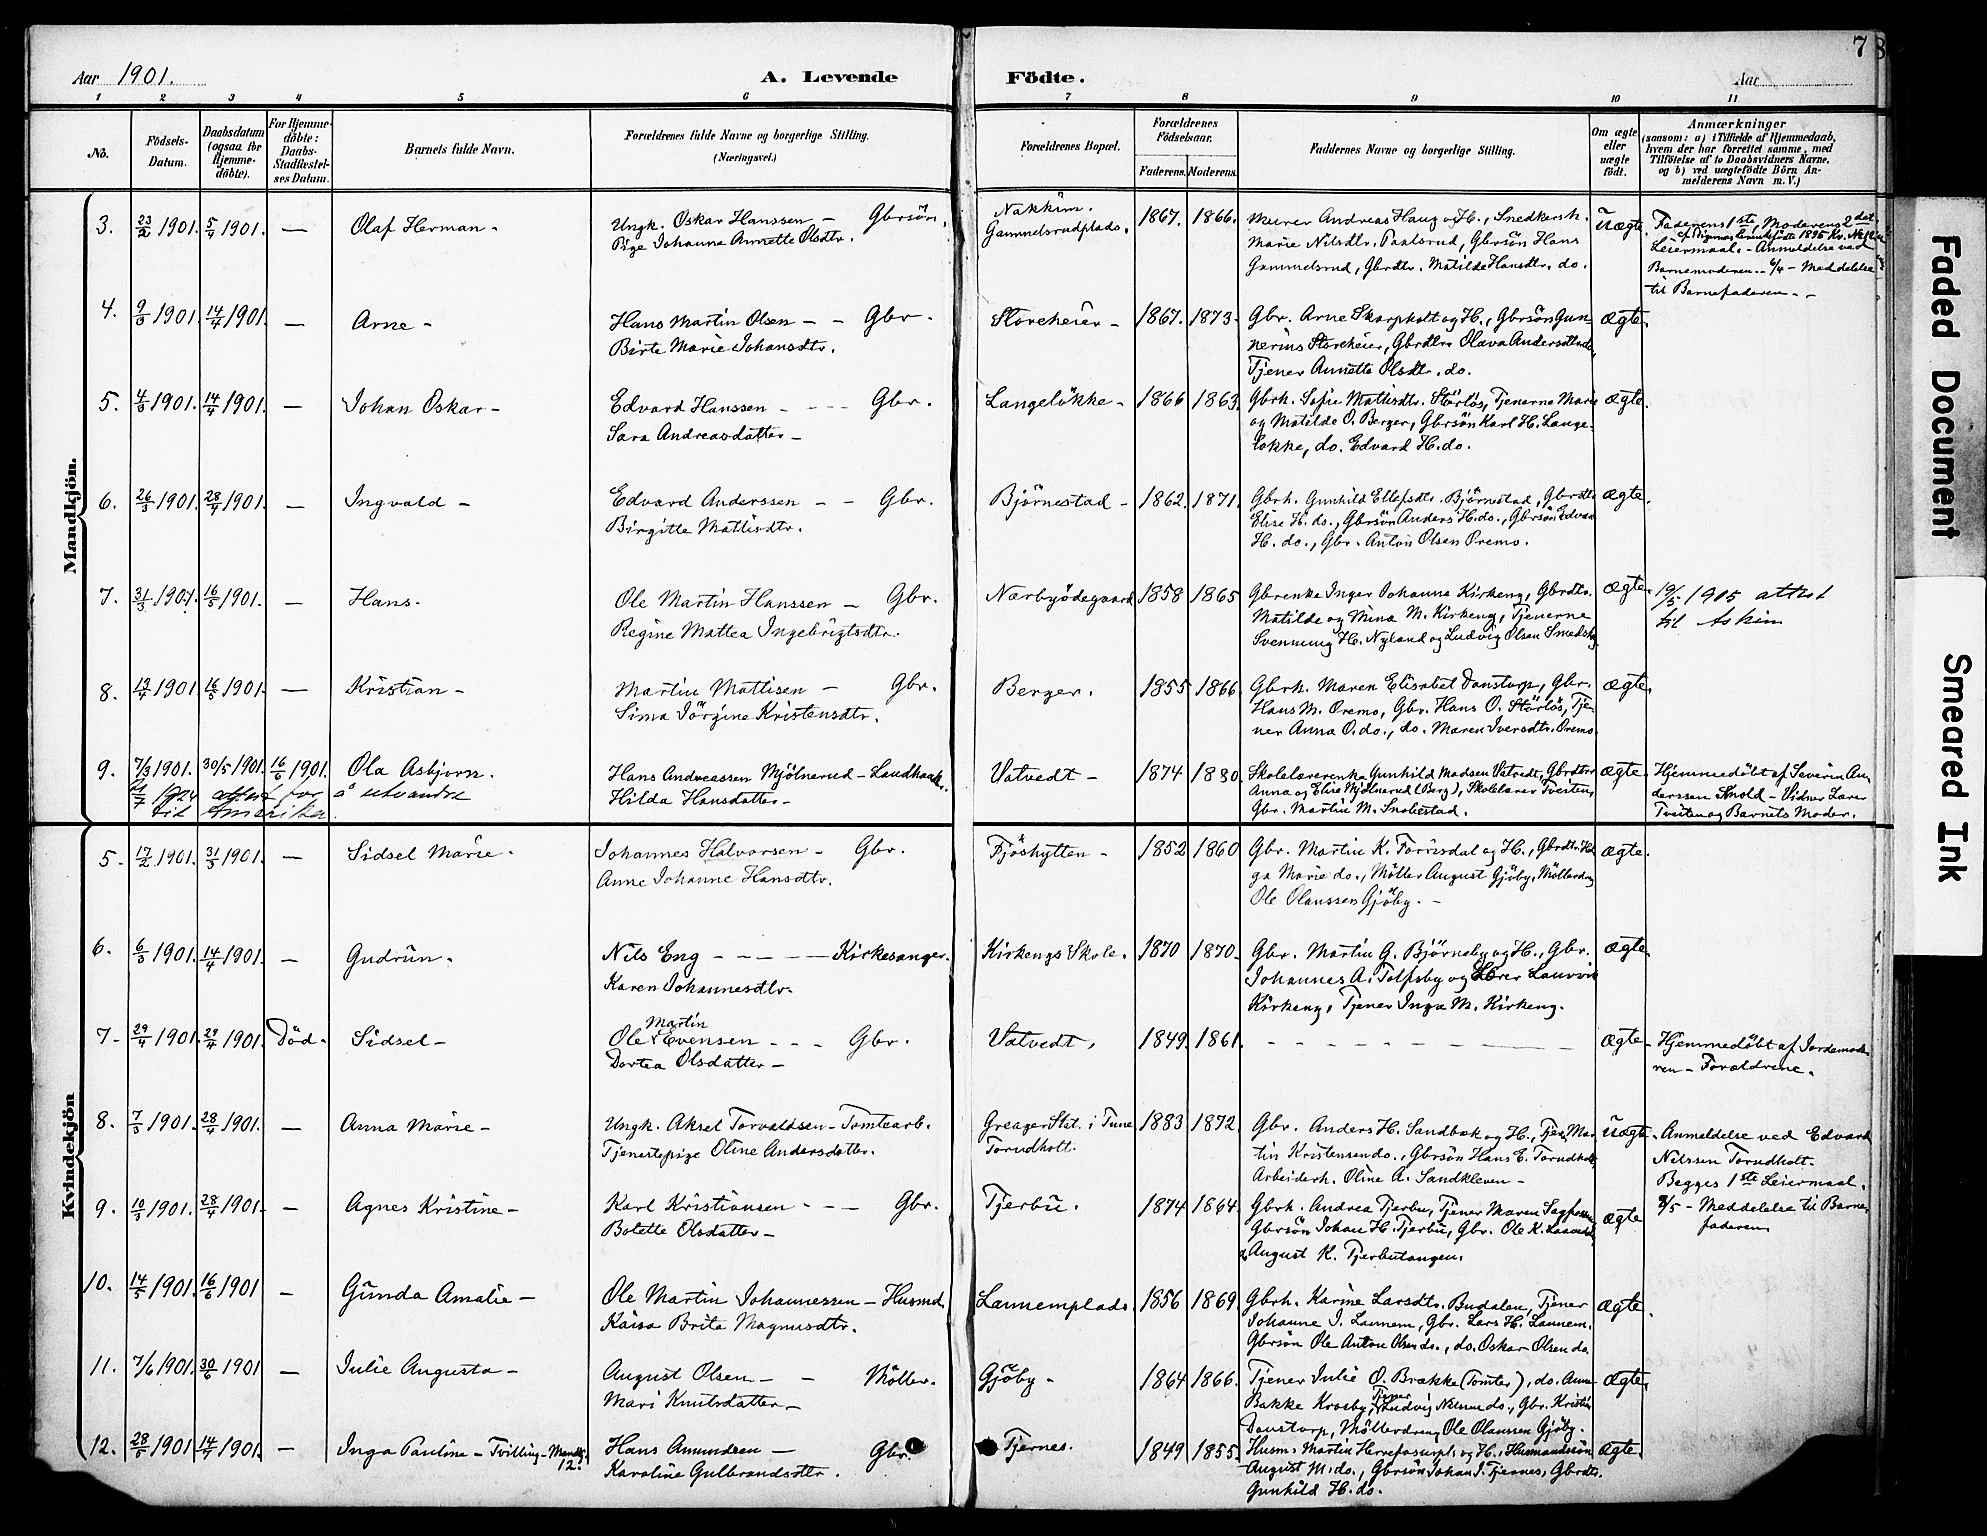 7 8
Aar 1901. A. Levende Födte. Aar
1 2 3 4 5 6 7 8 9 10 11
No.
Födsels-Datum.
Daabsdatum (ogsaa for Hjemme-döbte).
For Hjemme-döbte: Daabs-Stadfæstel-ses Datum.
Barnets fulde Navn.
Forældrenes fulde Navne og borgerlige Stilling.
(Næringsvei.)
Forældrenes Bopæl.
Forældrenes Födselsaar.
Faderens. Moderens.
Faddernes Navne og borgerlige Stilling.
Om ægte eller uægte födt.
Anmærkninger
(saasom: a) i Tilfælde af Hjemmedaab,
hvem der har forrettet samme, med
Tilföielse af to Daabsvidners Navne,
og b) ved uægtefödte Börn An-
melderens Navn m. V.)
Mandkjön.
3. 23/2 1901. 5/4 1901. — Olaf Herman - Ungk. Oskar Hanssen — Gbrsön. Nakkim. 1867. 1866. Murer Andreas Haug og H., Snedkersk. Uægte. Faderens 1ste, Moderens 2det
Pige Johanne Annette Olsdtr. Gammelsrudplads. Marie Nilsdtr. Paalsrud, Gbrsön Hans
Leiermaal. - Anmeldelse ved
Gammelsrud, Gbrdtr. Matilde Hansdtr. do. Barnemoderen. - 6/4 - Meddelelse
til Barnefaderen. -
4. 9/3 1901. 14/4 1901. — Arne - Hans Martin Olsen - - Gbr. Storeheier - 1867. 1873. Gbr. Arne Skarpholt og H., Gbrsön Gun- Ægte.
Birte Marie Johansdtr. nerius Storeheier, Gbrdtr. Olava Andersdtr.
Tjener Annette Olsdtr. do.
5. 4/3 1901. 14/4 1901. — Johan Oskar - Edvard Hanssen - - - Gbr. Langelökke - 1866 1863. Gbrk. Sofie Mattisdtr. Störlös, Tjenerne Marie Ægte.
Sara Andreasdatter - og Matilde O. Berger, Gbrsön Karl H. Lange-
lökke, do. Edvard H. do.
6. 26/3 1901. 28/4 1901. — Ingvald - Edvard Anderssen - - Gbr. Bjørnestad - 1862. 1871. Gbrh. Gunhild Ellefsdtr. Bjørnestad, Gbrdtr. Ægte.
Birgitte Mattisdtr. Elise H. do., Gbrsön Anders H. do., Gbrsön Edvard
H. do., Gbr. Anton Olsen Oremo.
7. 31/3 1901. 16/5 1901. — Hans. Ole Martin Hanssen - Gbr. Nærbyödegaard 1858 1865 Gbrenke Inger Johanne Kirkeng, Gbrdtr. Ægte. 19/5 1905 attest
Regine Mattea Ingebrigtsdtr. Matilde og Mina M. Kirkeng, Tjenerne til Askim
Svennung H. Nyland og Ludvig Olsen
8. 13/4 1901 16/5 1901. — Kristian - Martin Mattisen - Gbr. Berger. 1855 1866 Gbrh. Maren Elisabet Danstorp, Gbr. Ægte.
Sima Jörgine Kristensdtr. Hans M. Oremo, Gbr. Hans O. Störlös, Tje-
ner Anna O. do., do. Maren Iversdtr. Oremo.
9. 7/3 1901. 30/5 1901. 16/6 1901. Ola Asbjørn. Hans Andreassen Mjölnerud - Landhandl. Vatvedt - 1874 1880. Skolelærerenke Gunhild Madsen Vatvedt, Gbrdtr. Ægte. Hjemmedöbt af Severin An-
1924 attest for å utvandre Hilda Hansdatter - Anna og Elise Mjölnerud (Berg), Skolelærer Tveiten, derssen - Vidner Lærer
til Amerika. Gbr. Martin M. Tveiten og Barnets Moder.
Kvindekjön
5. 17/2 1901. 31/3 1901. — Sidsel Marie. Johannes Halvorsen - Gbr. Fjöshytten - 1852 1860 Gbr. Martin K. og H., Gbrdtr. Hel- Ægte.
Anne Johanne Hansdtr. ga Marie do., Möller August Gjöby, Mölledreng
Ole Olaussen Gjöby. -
6. 6/3 1901. 14/4 1901. — Gudrun. Nils Eng - - - - Kirkesanger. Kirkengs Skole. 1870 1870. Gbr. Martin G. Björneby og H., Gbr. Ægte.
Karen Johannesdtr. Johannes A. Tolfsby og Lærer
Kirkeng, Tjener Inga M. Kirkeng.
7. 29/4 1901. 29/4 1901. Död. Sidsel - Ole Martin Evensen - - - Gbr. Vatvedt, 1849. 1861. - - - - - - - - Ægte Hjemmedöbt af Jordemode-
Dortea Olsdatter - ren - Forældrene.
8. 7/3 1901. 28/4 1901. — Anna Marie - Ungk. Aksel Torvaldsen - Tomtearb. Greager Stat. i Tune 1883 1872. Gbr. Anders H. Sandbæk og H., Tjen. Mar- Uægte. Anmeldelse ved Edvard
Tjenestepige Oline Andersdatter. Torudholt. tin Kristensen do., Gbrsön Hans E. Torudholt, Nilssen Torudholt.
Arbeiderh. Oline A. Sandkleven - Begges 1ste Leiermaal.
9. 10/3 1901. 28/4 1901. — Agnes Kristine - Karl Kristiansen - - - Gbr. Tjerbu. 1874 1864. Gbrh. Andrea Tjerbu, Tjener Maren Ægte 8/5 - Meddelelse til Barne-
Bolette Olsdatter - Gbrsön Johan H. Tjerbu, Gbr. Ole K. faderen
August K. Tjerbutangen.
10. 14/5 1901. 16/6 1901 — Gunda Amalie - Ole Martin Johannessen - Husmd. Lannemplads 1856 1869 Gbrh. Karine Larsdtr. Budalen, Tjener Ægte.
Kaisa Brita Magnusdtr. Johanne J. Lannem, Gbr. Lars H. Lannem.
Gbrsön Ole Anton Olsen do., do. Oskar Olsen do.
11. 7/6 1901. 30/6 1901 — Julie Augusta - August Olsen - - Möller. Gjöby - 1864 1866. Tjener Julie O. Brække (Tomter), do. Anna Ægte.
Mari Knutsdatter - Bakke Krosby, Tjener Ludvig Nilssen do., Gbr. Kristian
Danstorp, Mölledreng Ole Olaussen Gjöby.
12. 28/5 1901 14/7 1901. — Inga Pauline - Tvilling - Mandkj. 12. Hans Amundsen - Gbr. Tjernes. 1849 1855. Husm. Martin og H., Husmandssön Ægte.
Karoline Gulbrandsdtr. August M. do., Gbrsön Johan J. Tjernes, Gbrdtr.
Gunhild H. do.
Faded Document
Smeared Ink